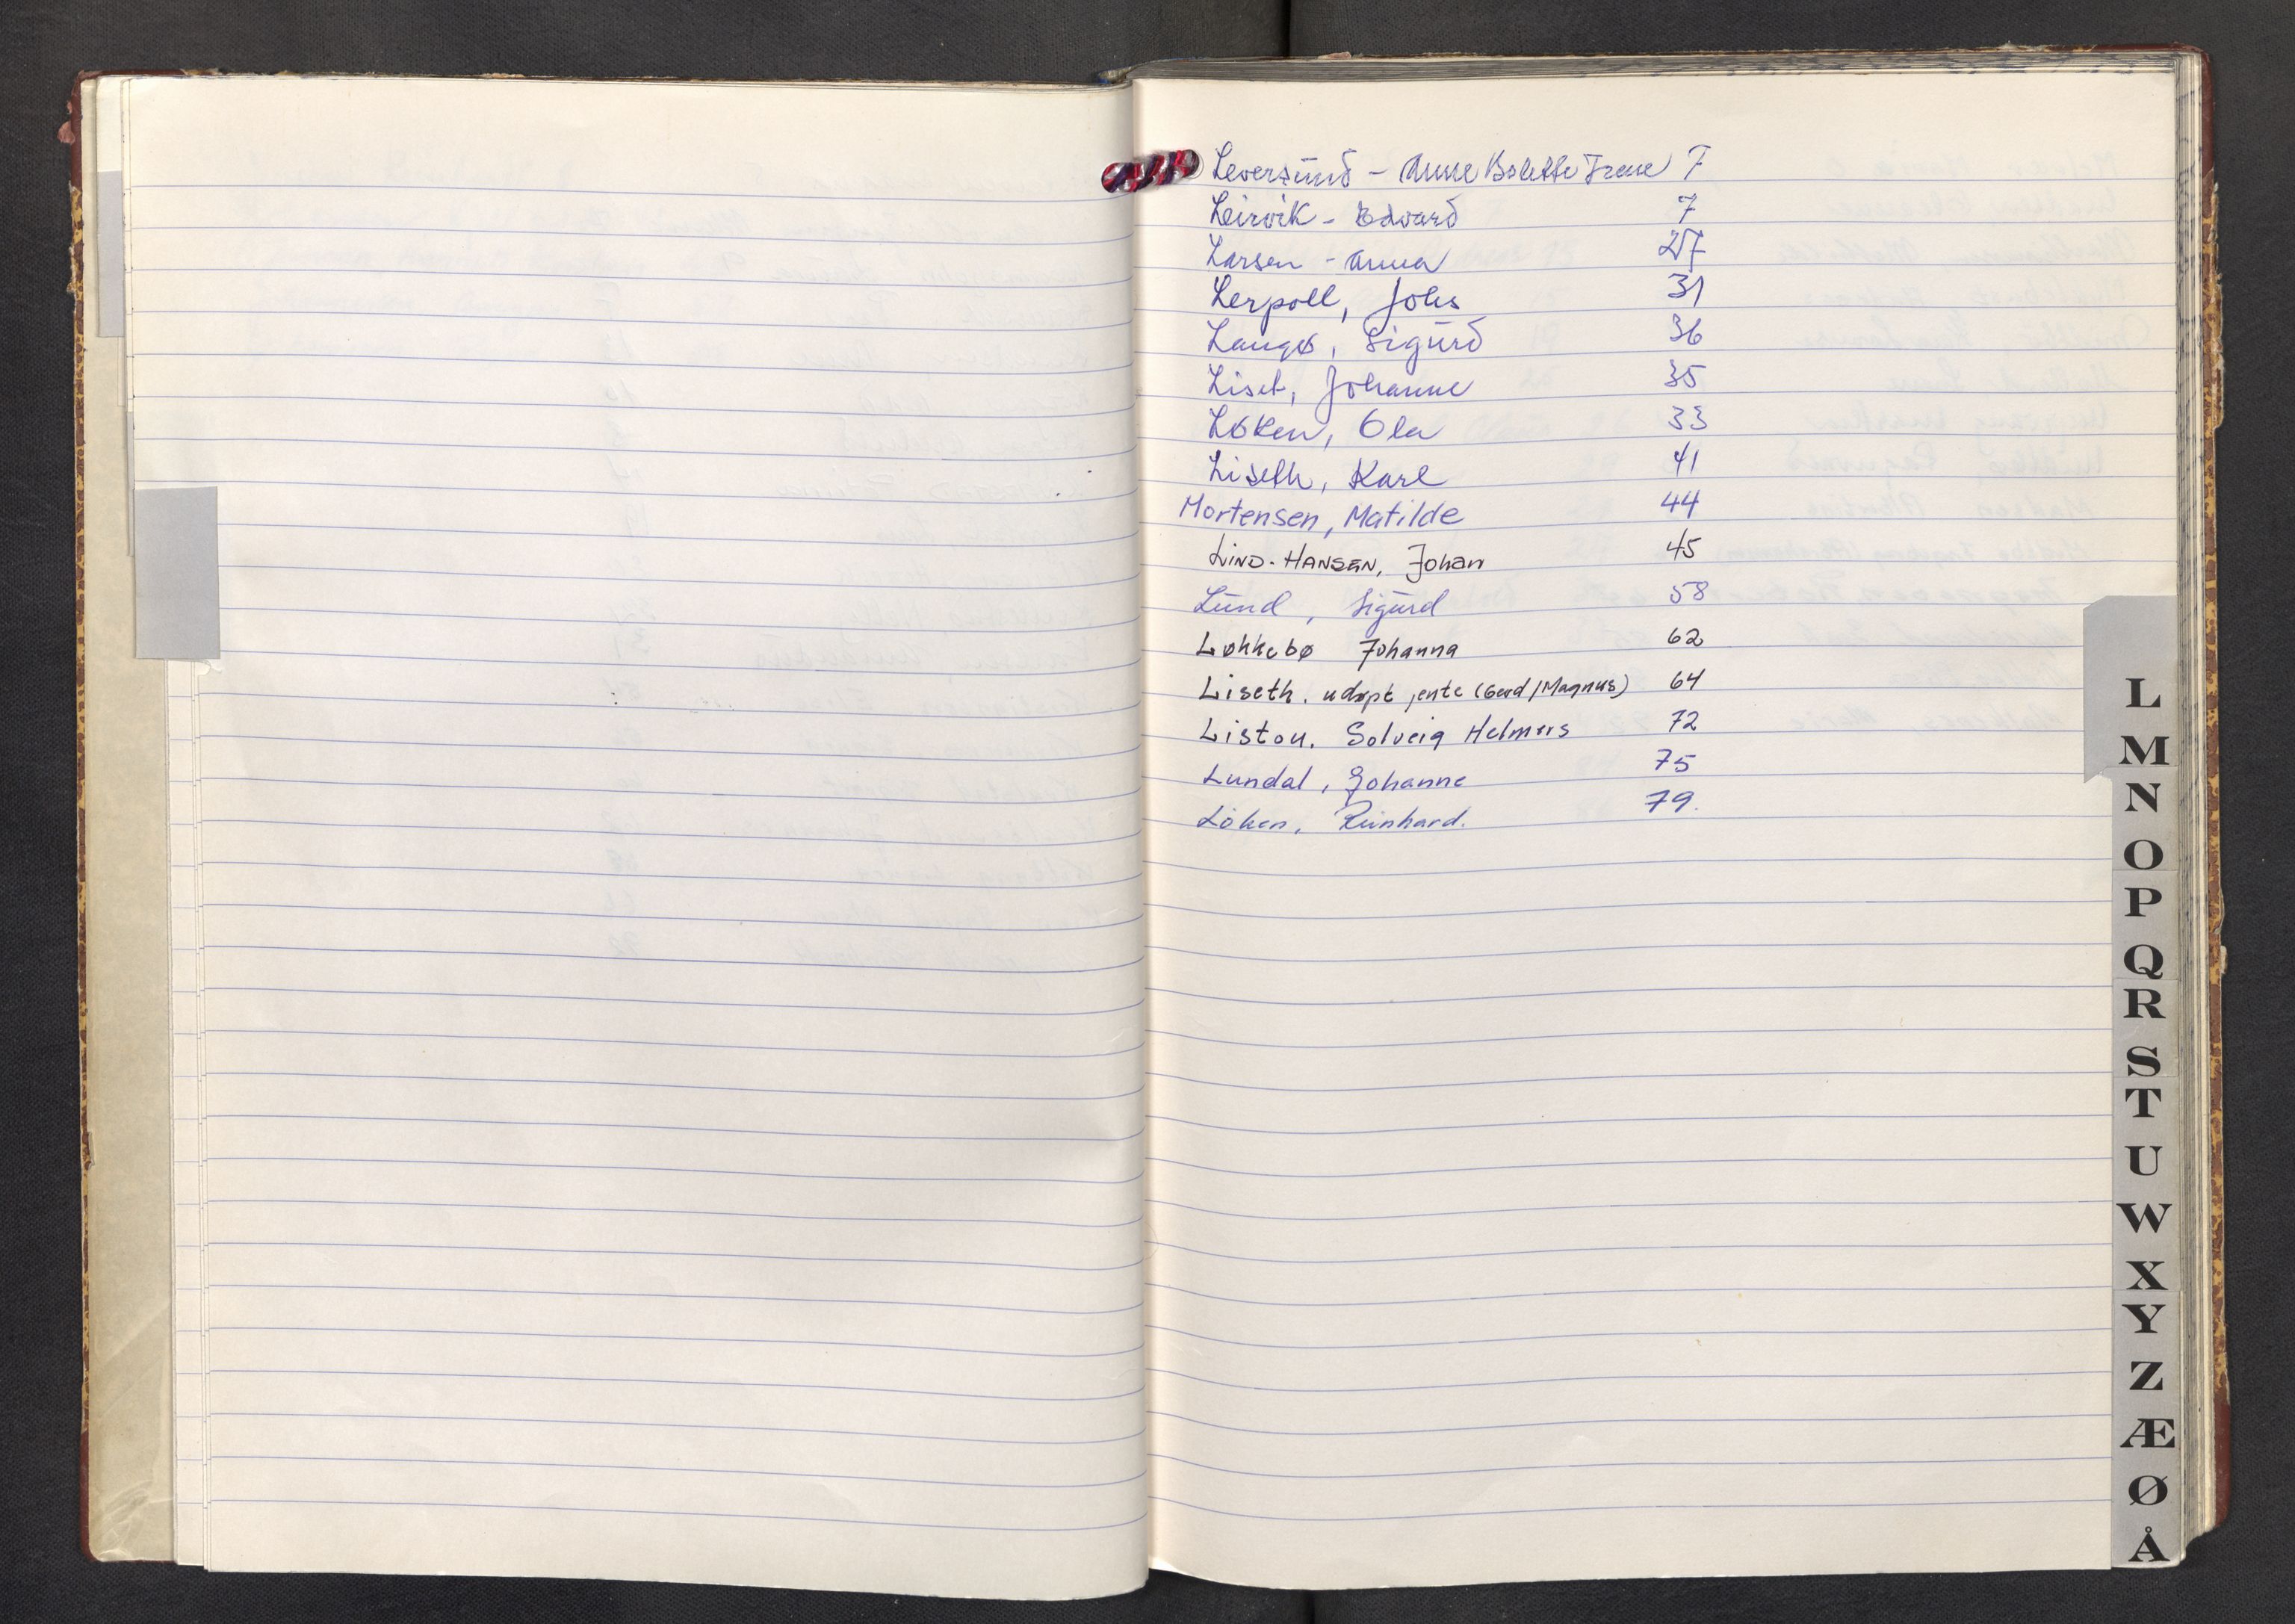 Leversund - Anne Bolette Irene 7
Leirvik - Edvard 7
Larsen - Anna 27
Lerpoll, Johs 31
Langø, Sigurd 36
Liset, Johanne 35
Løken, Ola 33
Liseth, Karl 41
Mortensen, Matilde 44
LIND-HANSEN, Johan 45
Lund, Sigurd 58
Løkkebø Johanna 62
Liseth. udøpt jente (Gerd/Magnus) 64
Listou. Solveig Helmers 72
Lundal, Johanne 75
Löken, Reinhard. 79.
L
M
N
O
P
Q
R
S
T
U
W
X
Y
Z
Æ
Ø
Å